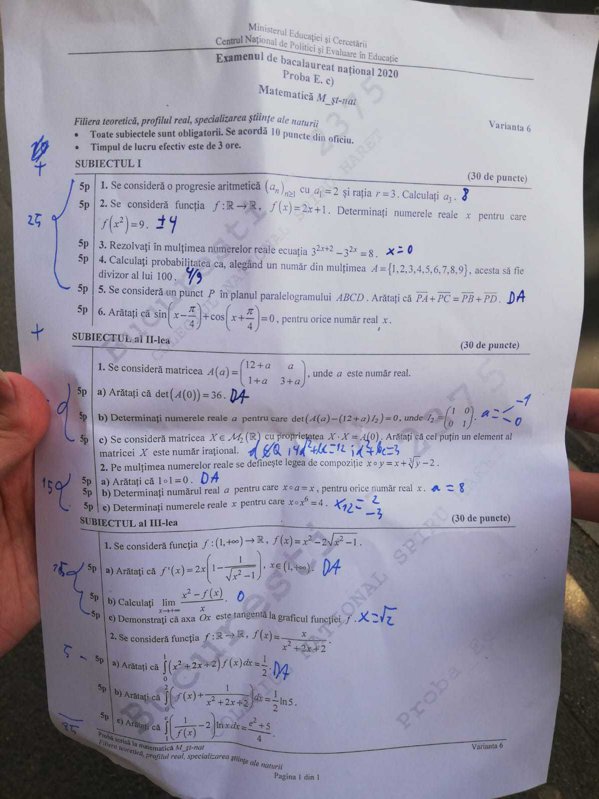 Ministerul Educației și Cercetării
Centrul Național de Politici și Evaluare în Educație
Examenul de bacalaureat național 2020
Proba E. c)
Matematică M_șt-nat
Varianta 6
Filiera teoretică, profilul real, specializarea științe ale naturii
• Toate subiectele sunt obligatorii. Se acordă 10 puncte din oficiu.
• Timpul de lucru efectiv este de 3 ore.
SUBIECTUL I (30 de puncte)
5p 1. Se consideră o progresie aritmetică (aₙ)ₙ≥₁ cu a₁ = 2 și rația r = 3. Calculați a₃. 8
5p 2. Se consideră funcția f : ℝ → ℝ, f(x) = 2x + 1. Determinați numerele reale x pentru care
f(x²) = 9. ±4
25
5p 3. Rezolvați în mulțimea numerelor reale ecuația 3^(2x+2) − 3^(2x) = 8. x=0
5p 4. Calculați probabilitatea ca, alegând un număr din mulțimea A = {1,2,3,4,5,6,7,8,9}, acesta să fie
divizor al lui 100. 4/9
5p 5. Se consideră un punct P în planul paralelogramului ABCD. Arătați că PA + PC = PB + PD. DA
5p 6. Arătați că sin(x − π/4) + cos(x + π/4) = 0, pentru orice număr real x.
SUBIECTUL al II-lea (30 de puncte)
1. Se consideră matricea A(a) = (12+a a
1+a 3+a), unde a este număr real.
5p a) Arătați că det(A(0)) = 36. DA
5p b) Determinați numerele reale a pentru care det(A(a) − (12+a)I₂) = 0, unde I₂ = (1 0
0 1). a= -1
0
5p c) Se consideră matricea X ∈ M₂(ℝ) cu proprietatea X · X = A(0). Arătați că cel puțin un element al
matricei X este număr irațional.
2. Pe mulțimea numerelor reale se definește legea de compoziție x∘y = x + ∛y − 2.
15
5p a) Arătați că 1∘1 = 0. DA
5p b) Determinați numărul real a pentru care x∘a = x, pentru orice număr real x. a = 8
5p c) Determinați numerele reale x pentru care x∘x⁶ = 4. x12= 2
-3
SUBIECTUL al III-lea (30 de puncte)
1. Se consideră funcția f : (1,+∞) → ℝ, f(x) = x² − 2√(x²−1).
5p a) Arătați că f'(x) = 2x(1 − 1/√(x²−1)), x ∈ (1,+∞). DA
5p b) Calculați lim x→+∞ (x² − f(x))/x. 0
5p c) Demonstrați că axa Ox este tangentă la graficul funcției f. x=√2
2. Se consideră funcția f : ℝ → ℝ, f(x) = x/(x²+2x+2).
5 -
5p a) Arătați că ∫₀¹ (x²+2x+2) f(x) dx = 1/2. DA
5p b) Arătați că ∫ (f(x) + 1/(x²+2x+2)) dx = 1/2 ln 5.
5p c) Arătați că ∫₁ᵉ (1/f(x) − 2) ln x dx = (e²+5)/4.
Probă scrisă la matematică M_șt-nat Varianta 6
Filiera teoretică, profilul real, specializarea științe ale naturii
Pagina 1 din 1